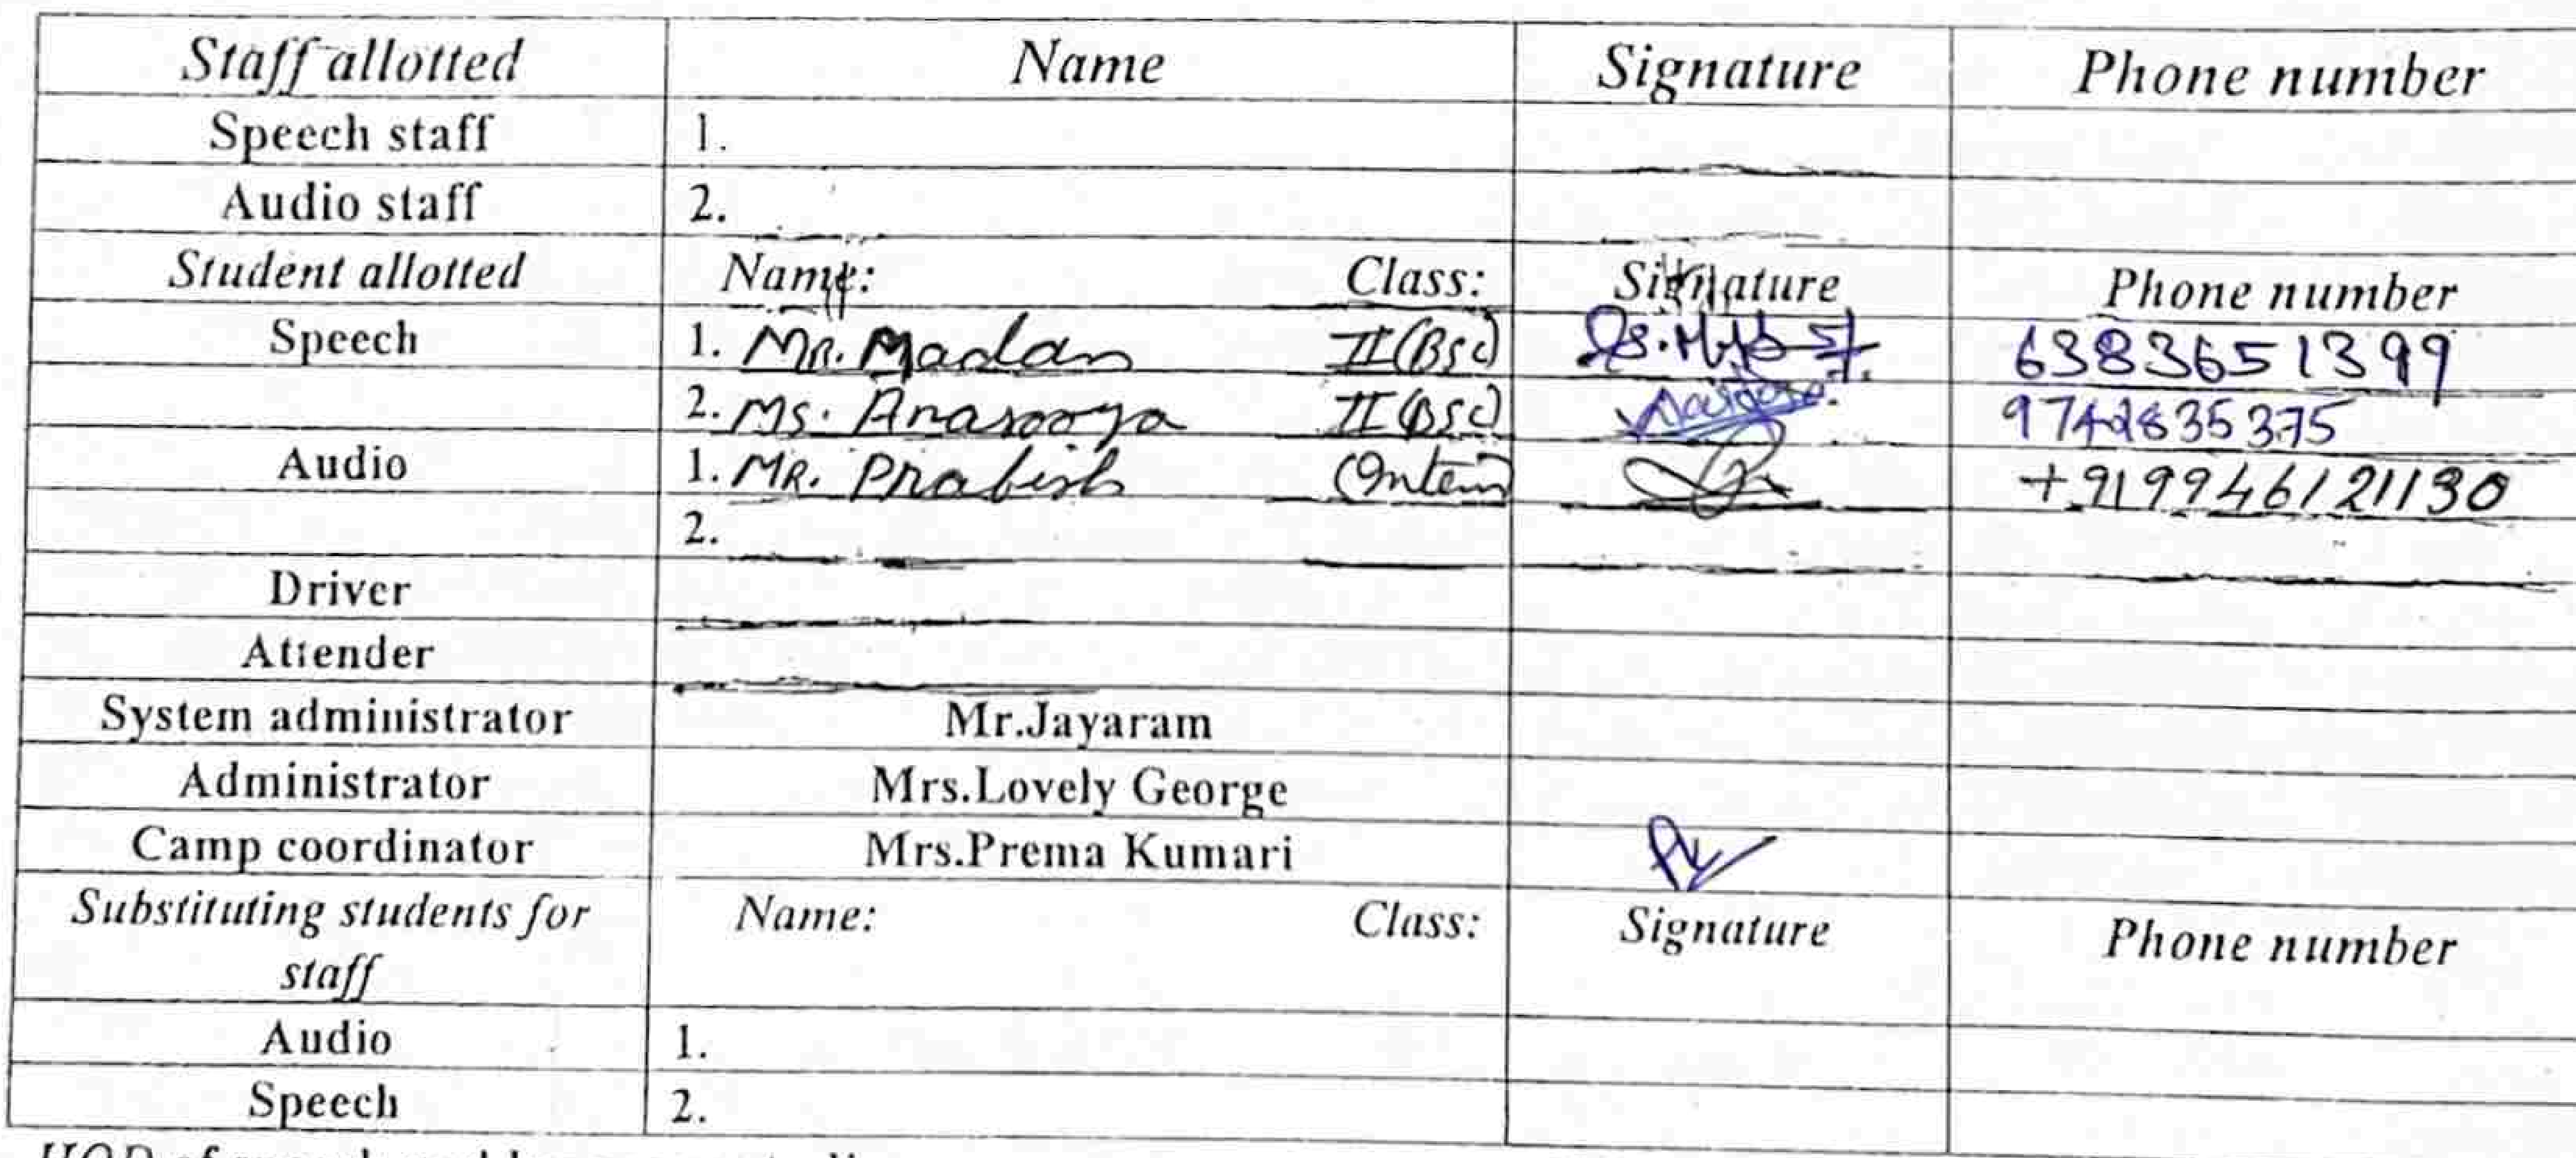 Staff allotted Name Signature Phone number
Speech staff 1.
Audio staff 2.
Student allotted Name: Class: Signature Phone number
Speech 1. Mr. Madan II (Bsc) 6383651399
2. Ms. Anasooya II (Bsc)
Audio 1. MR. Prabish (Intern) +919946121130
2.
Driver
Attender
System administrator Mr.Jayaram
Administrator Mrs.Lovely George
Camp coordinator Mrs.Prema Kumari
Substituting students for Name: Class: Signature Phone number
staff
Audio 1.
Speech 2.